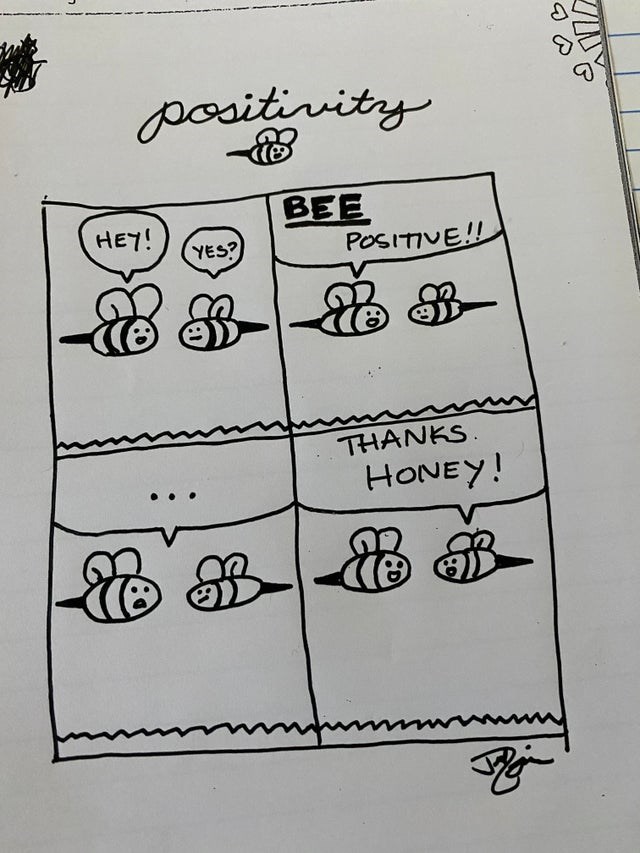 positivity
HEY!
YES?
BEE
POSITIVE!!
...
THANKS
HONEY!